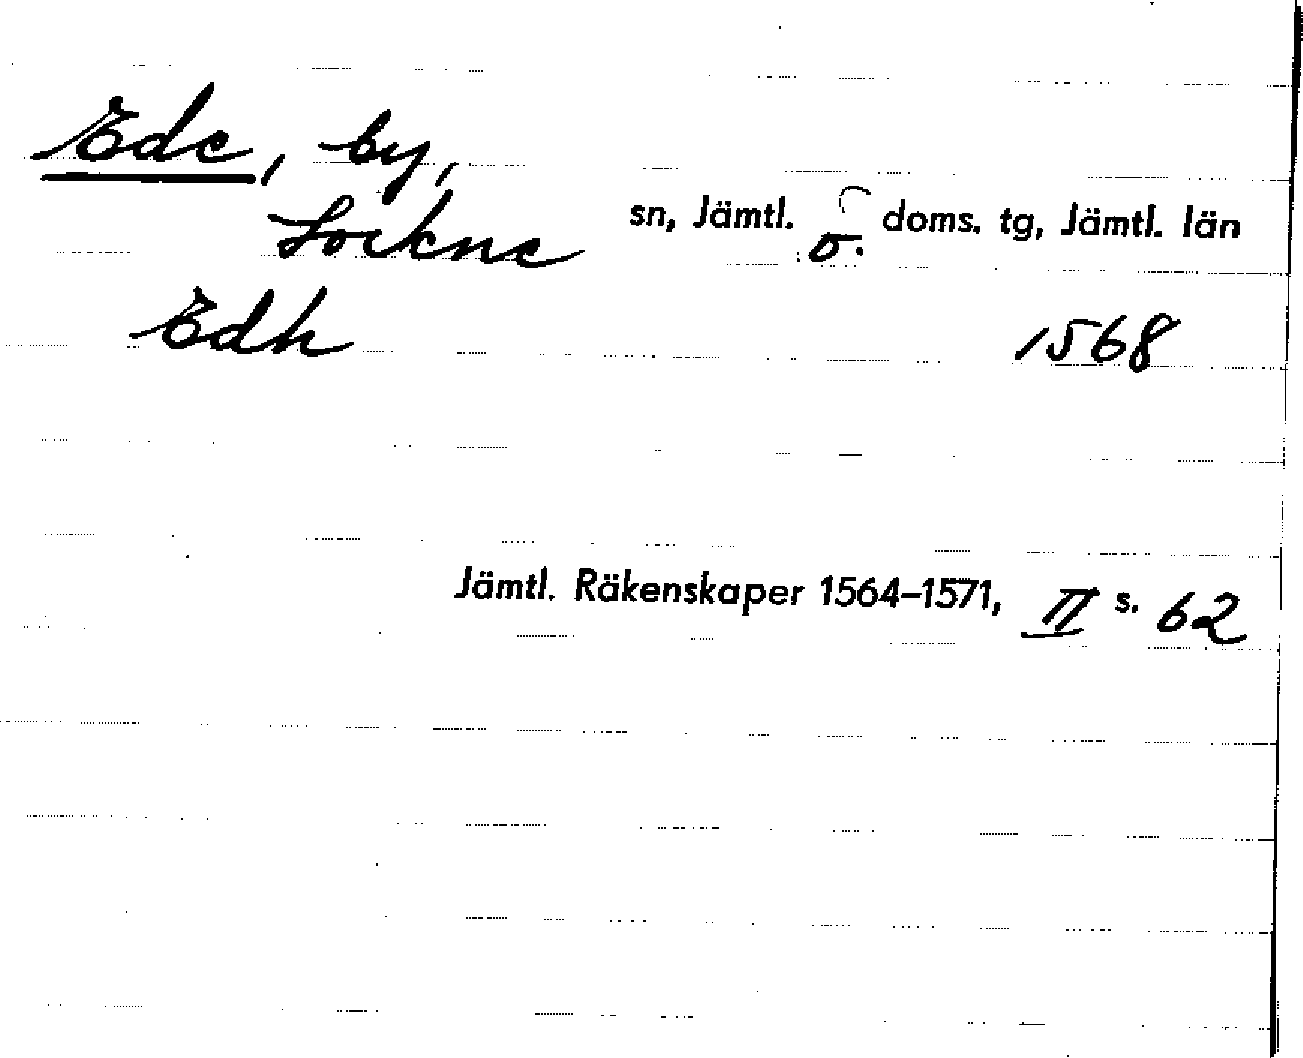 Ede, by,
Lockne sn, Jämtl. ö. doms. tg, Jämtl. län
Edh 1568
Jämtl. Räkenskaper 1564–1571, II s. 62